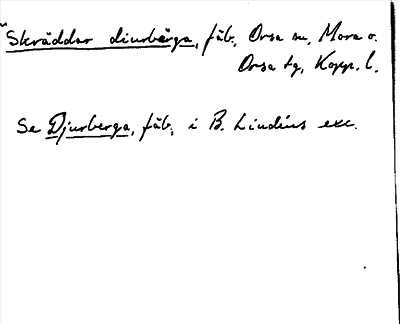 "Skräddar diurbärga, fäb., Orsa sn, Mora o.
Orsa tg, Kopp. l.
Se Djurberga, fäb., i B. Lindéns exc.